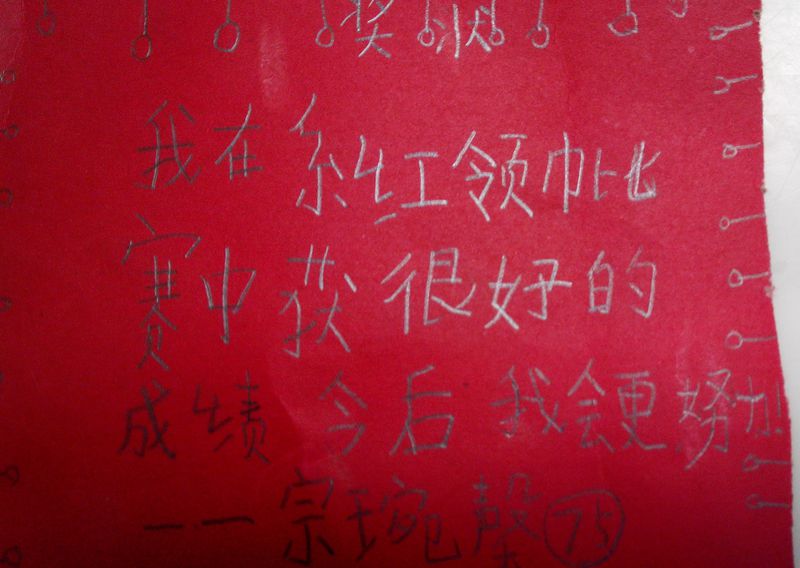 奖状
我在系红领巾比
赛中获很好的
成绩今后我会更努力!
——宗琬馨(75)